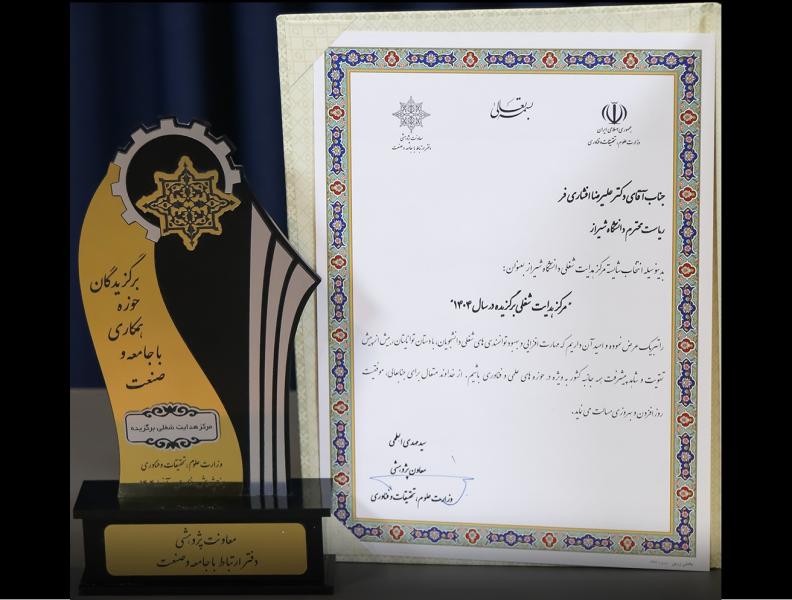 برگزیدگان
حوزه
همکاری
با جامعه و
صنعت
مرکز هدایت شغلی برگزیده
وزارت علوم، تحقیقات و فناوری
معاونت پژوهشی
دفتر ارتباط با جامعه و صنعت
بسمه تعالی
جمهوری اسلامی ایران
وزارت علوم، تحقیقات و فناوری
معاونت پژوهشی
دفتر ارتباط با جامعه و صنعت
جناب آقای دکتر علیرضا افشاری فر
ریاست محترم دانشگاه شیراز
بدینوسیله انتخاب شایسته مرکز هدایت شغلی دانشگاه شیراز بعنوان:
"مرکز هدایت شغلی برگزیده در سال ۱۴۰۴"
را تبریک عرض نموده و امید آن داریم که مهارت افزایی و بهبود توانمندی های شغلی دانشجویان، با دستان توانایتان، بیش از پیش
تقویت و شاهد پیشرفت همه جانبه کشور به ویژه در حوزه های علمی و فناوری باشیم. از خداوند متعال برای جنابعالی، موفقیت
روزافزون و بهروزی مسالت می نماید.
سید مهدی ابطحی
معاون پژوهشی
وزارت علوم، تحقیقات و فناوری